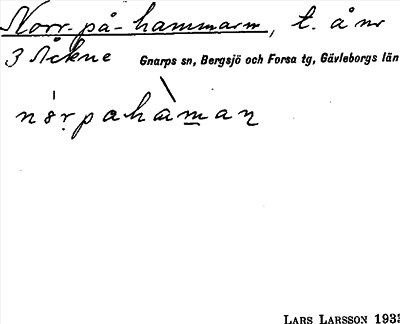 Norr-på-hammarm, t. å nr
3 Åckne Gnarps sn, Bergsjö och Forsa tg, Gävleborgs län
LARS LARSSON 1933